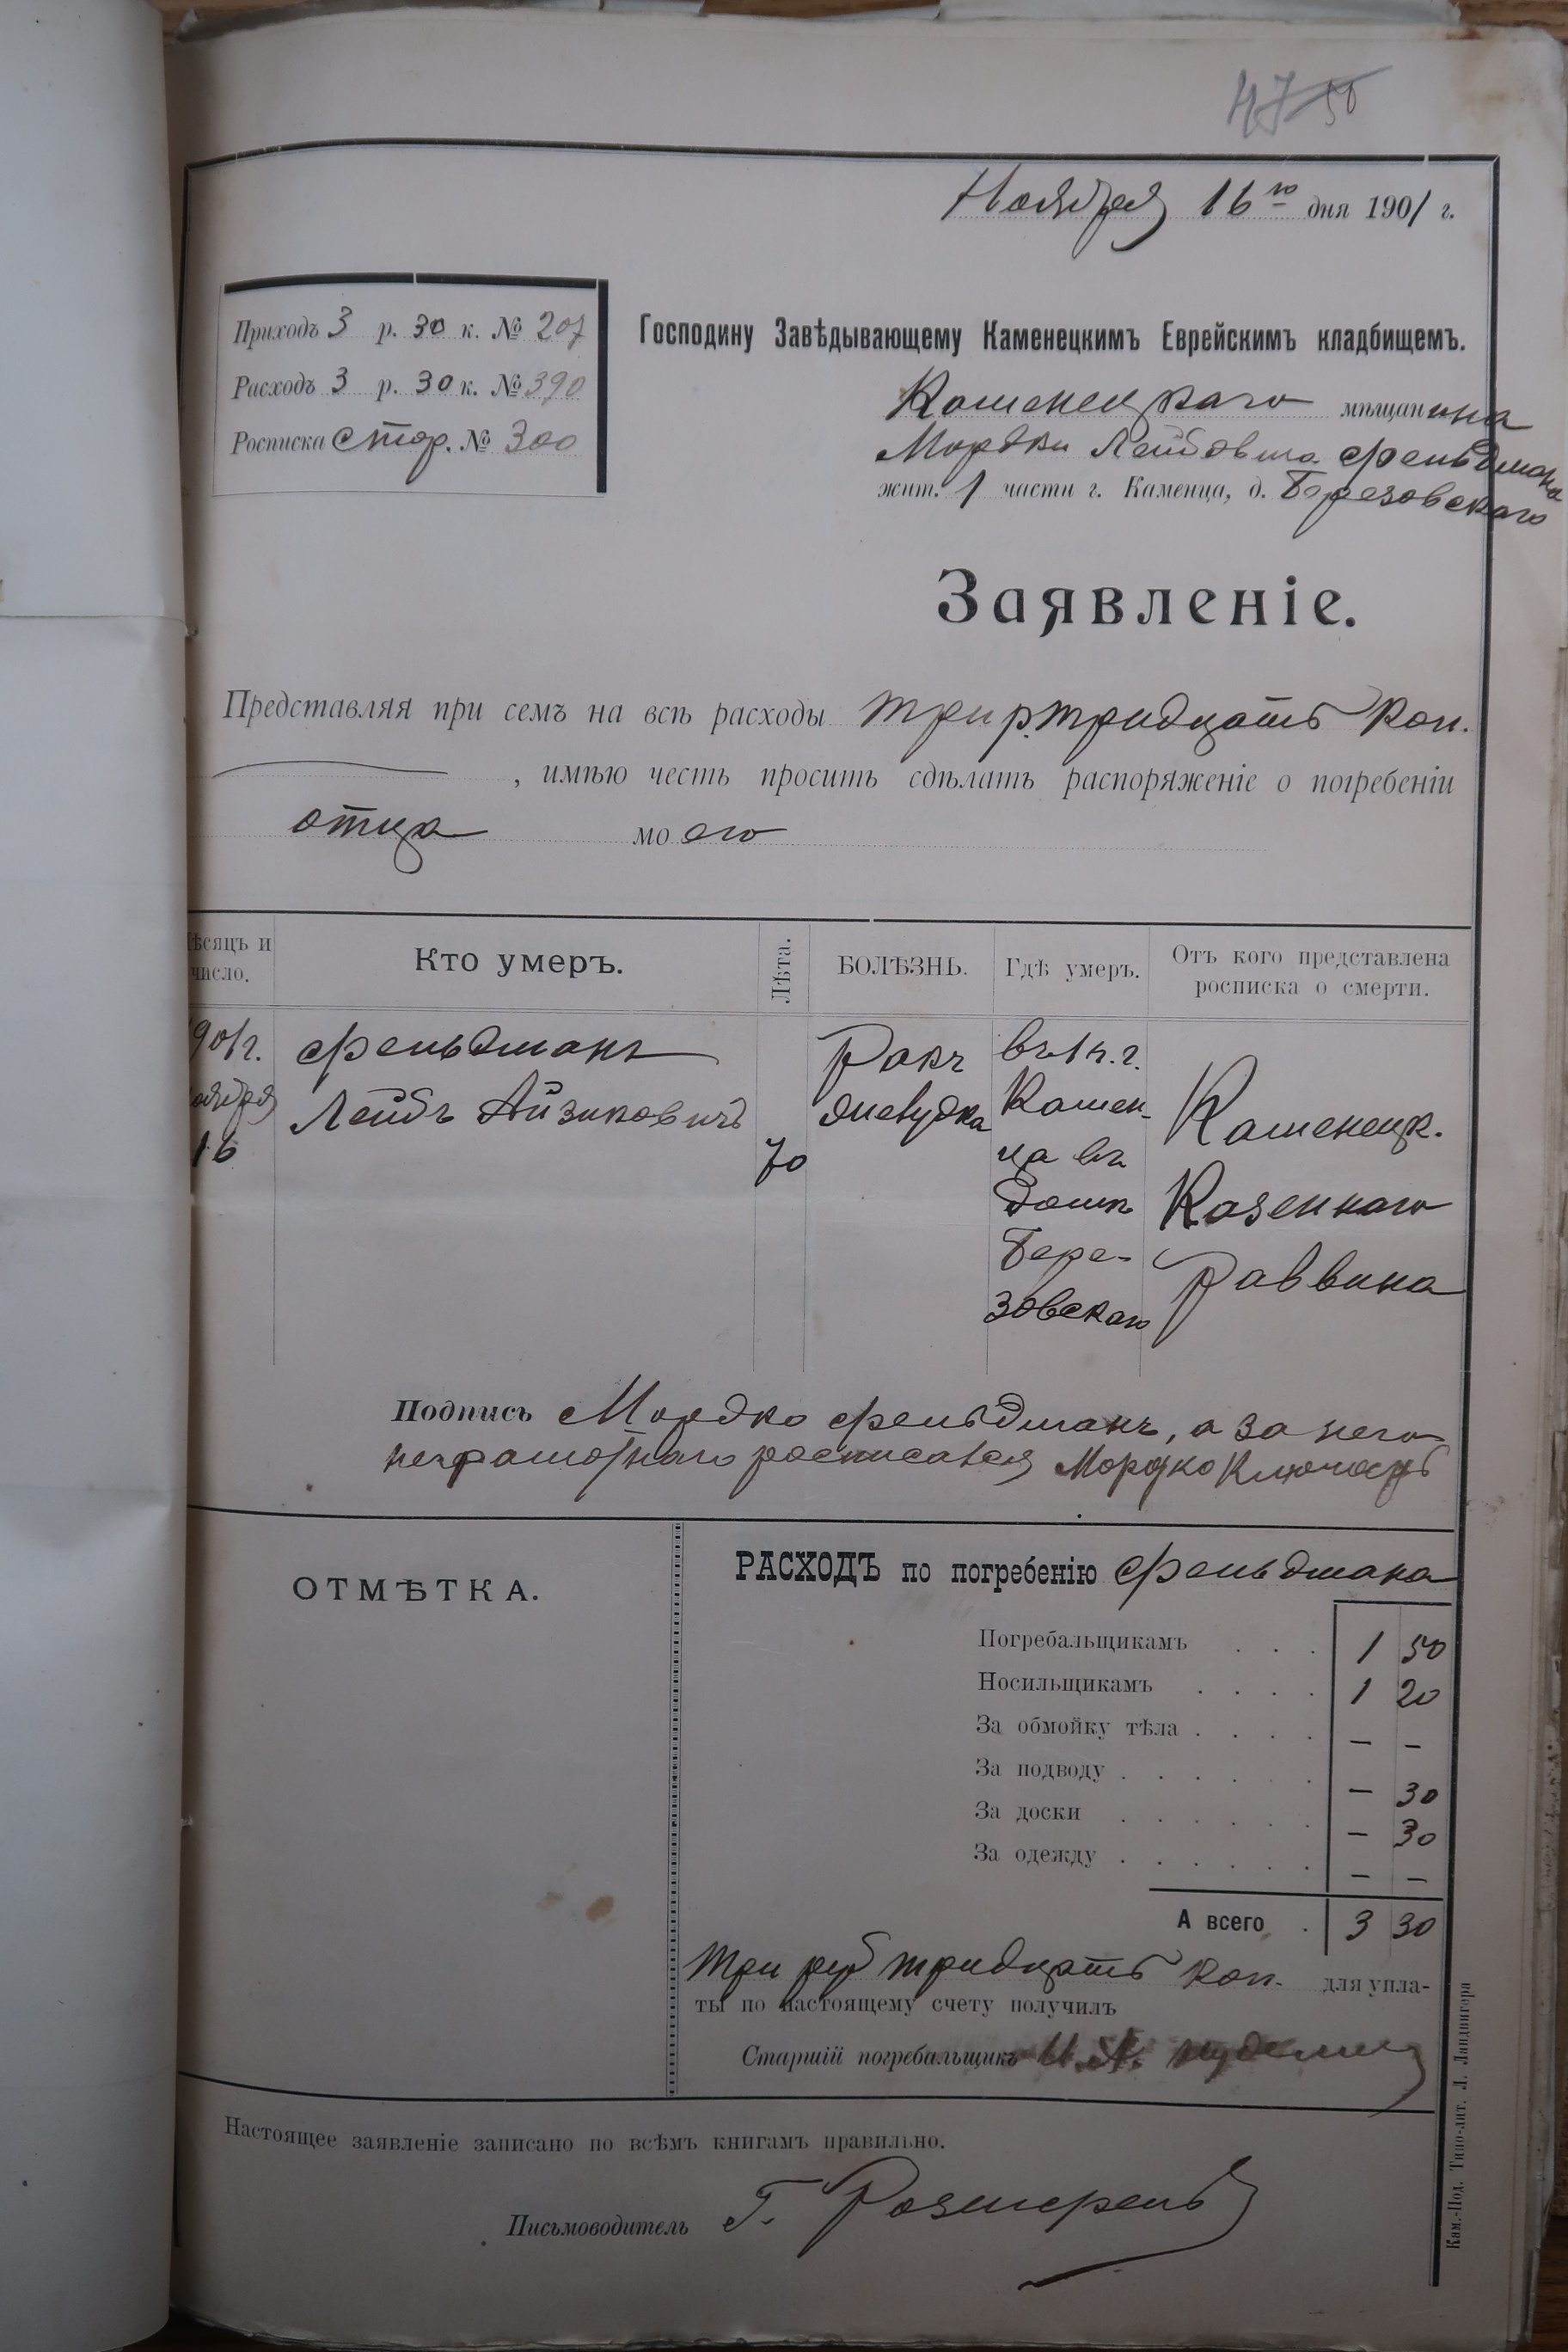 47 50
Ноября 16го дня 1901 г.
Приходъ 3 р. 30 к. № 207
Расходъ 3 р. 30 к. № 390
Росписка стор. № 300
Господину Завѣдывающему Каменецкимъ Еврейскимъ кладбищемъ.
Каменецкаго мѣщанина
Мордки Лейбовича Фельдмана
жит. 1 части г. Каменца, д. Березовскаго
Заявленіе.
Представляя при семъ на всѣ расходы три р. тридцать коп.
, имѣю честь просить сдѣлать распоряженіе о погребеніи
отца моего
Мѣсяцъ и число.
Кто умеръ.
Лѣта.
БОЛѢЗНЬ.
Гдѣ умеръ.
Отъ кого представлена
росписка о смерти.
901 г.
оября
16
Фельдманъ
Лейбъ Айзиковичъ
70
Ракъ
желудка
въ 1 ч. г.
Камен-
ца въ
домѣ
Бере-
зовскаго
Каменецк.
Казеннаго
Раввина
Подпись Мордко Фельдманъ, а за него
неграмотнаго росписался Мордко
ОТМѢТКА.
РАСХОДЪ по погребенію Фельдмана
Погребальщикамъ . . . 1 50
Носильщикамъ . . . . 1 20
За обмойку тѣла . . . . – –
За подводу . . . . . . – 30
За доски . . . . . . – 30
За одежду . . . . . . – –
А всего . 3 30
Три руб тридцать коп. для упла-
ты по настоящему счету получилъ
Старшій погребальщикъ
Настоящее заявленіе записано по всѣмъ книгамъ правильно.
Письмоводитель Г.
Кам.-Под. Типо-лит. Л. Ландвигера